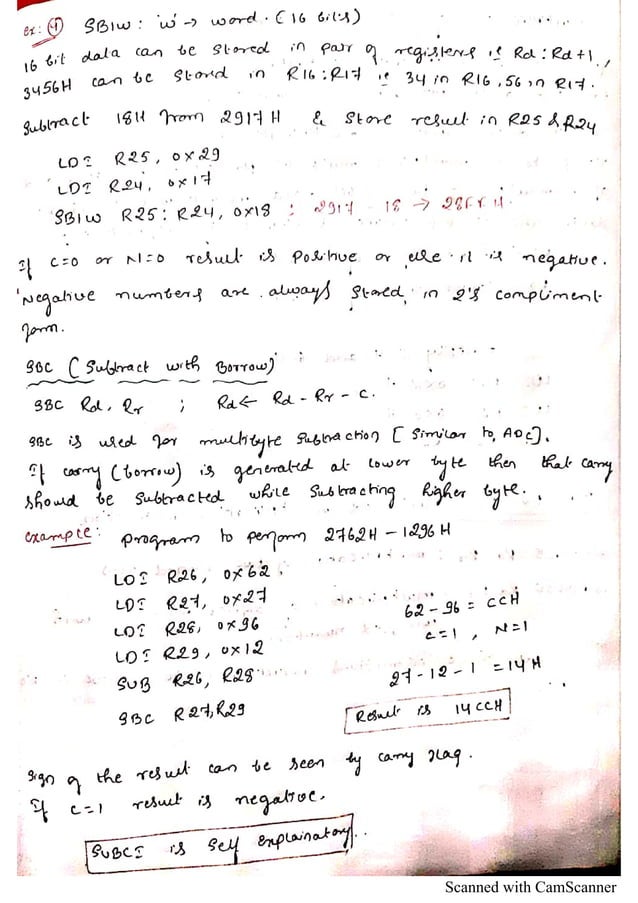 ex: (4) SBIW : 'W' → word. (16 bits)
16 bit data can be stored in pair of registers ie Rd : Rd+1,
3456H can be stored in R16 : R17 ie 34 in R16, 56 in R17.
Subtract 18H from 2917H & store result in R25 & R24
LDI R25, 0x29
LDI R24, 0x17
SBIW R25 : R24, 0x18 ; 2917 - 18 → 28FFH
If C=0 or N=0 result is positive or else it is negative.
Negative numbers are always stored in 2's compliment
form.
SBC (Subtract with Borrow)
SBC Rd, Rr ; Rd ← Rd - Rr - C.
SBC is used for multibyte subtraction [Similar to ADC].
If carry (borrow) is generated at lower byte then that carry
should be subtracted while subtracting higher byte.
example: program to perform 2762H - 1296H
LDI R26, 0x62
LDI R27, 0x27
LDI R28, 0x96
LDI R29, 0x12
SUB R26, R28
SBC R27, R29
62 - 96 = CCH
C=1, N=1
27 - 12 - 1 = 14H
Result is 14CCH
Sign of the result can be seen by carry flag.
If C=1 result is negative.
SUBCI is self explainatory.
Scanned with CamScanner